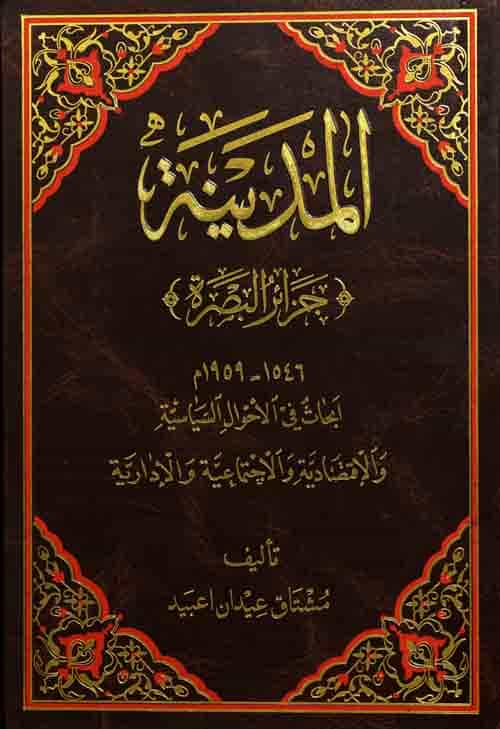 المدينة
﴿جزائر البصرة﴾
١٥٤٦ - ١٩٥٩م
أبحاث في الأحوال السياسية
والإقتصادية والإجتماعية والإدارية
تأليف
مشتاق عيدان اعبيد